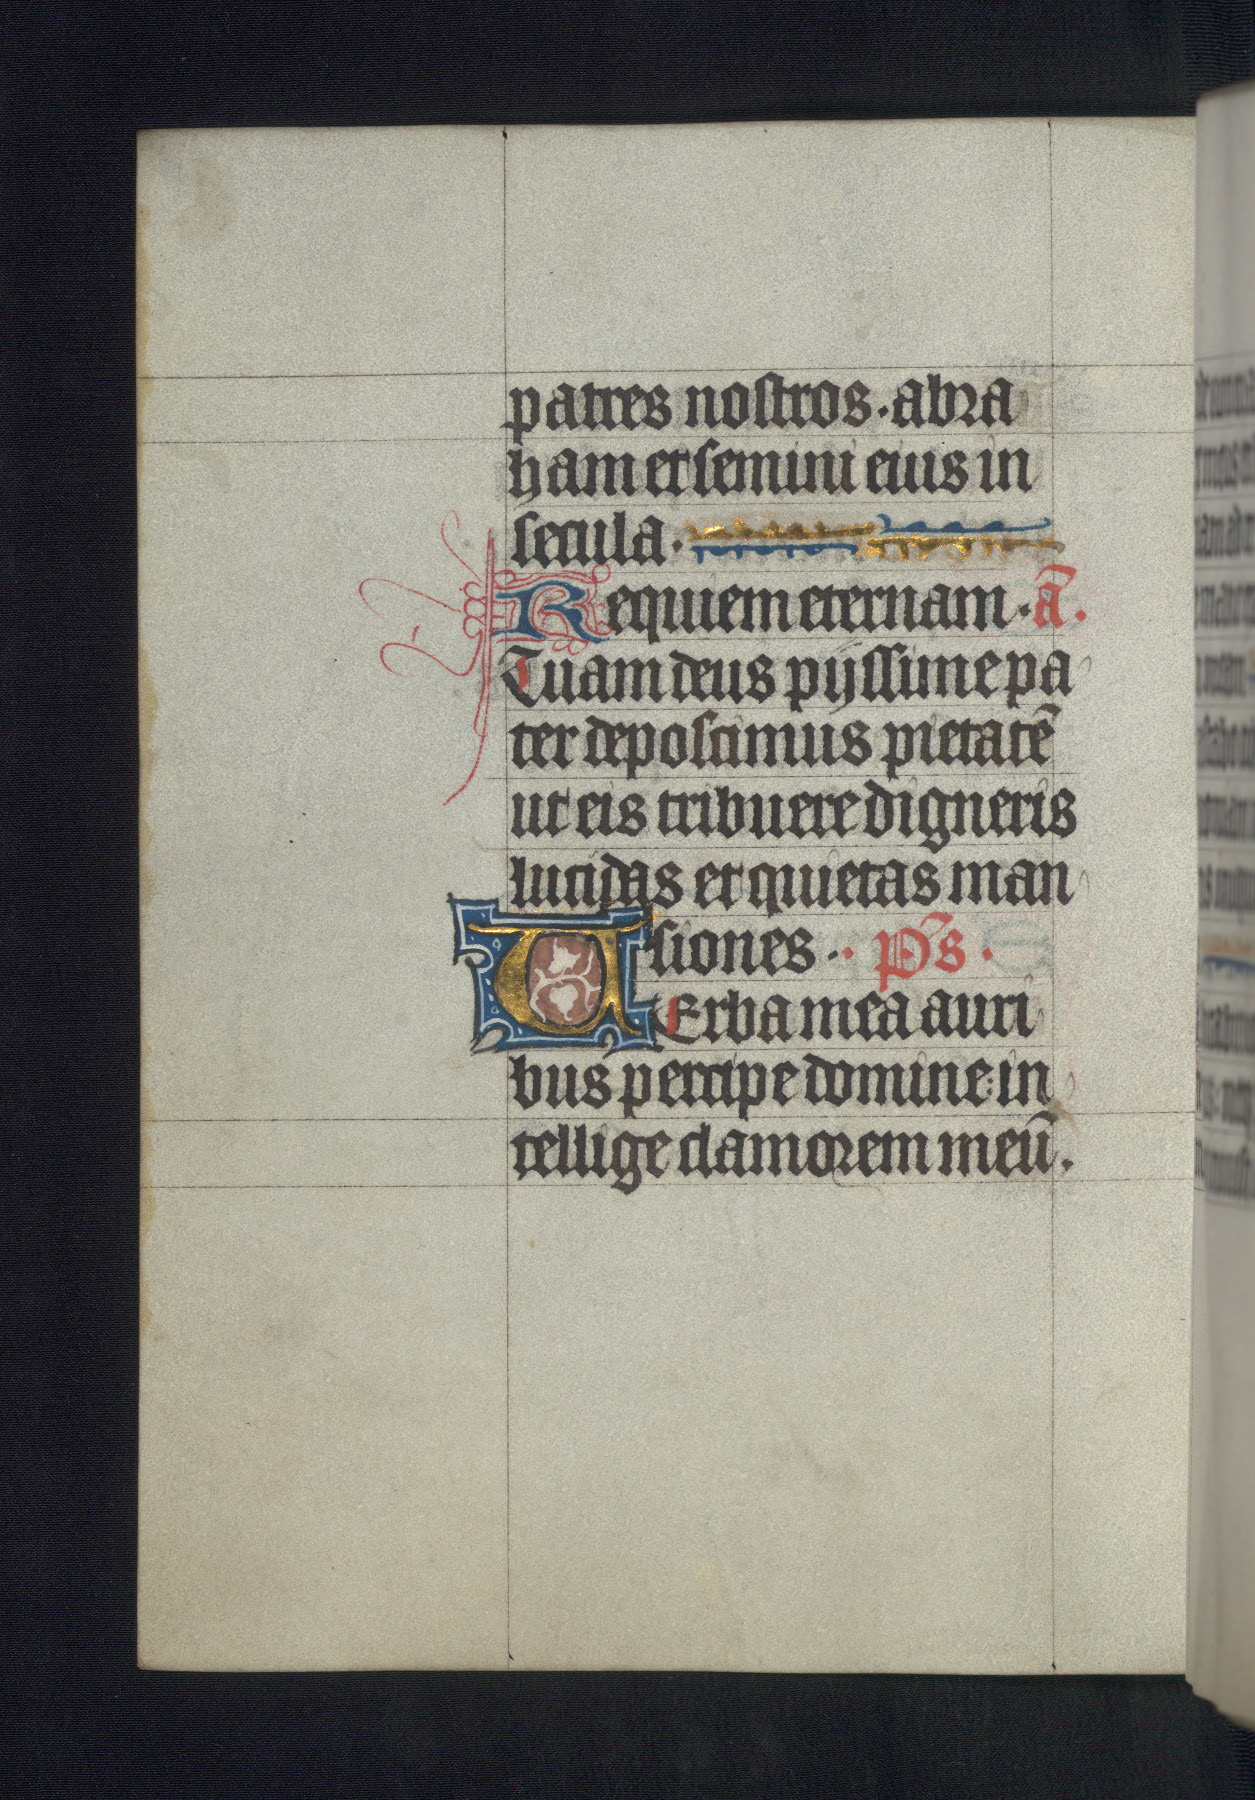 patres nostros. abra
ham et semini eius in
secula.
Requiem eternam. ā.
Tuam deus pijssime pa
ter deposcimus pietatē
ut eis tribuere digneris
lucidas et quietas man
siones. p̄s.
UErba mea auri
bus percipe domine: in
tellige clamorem meū.